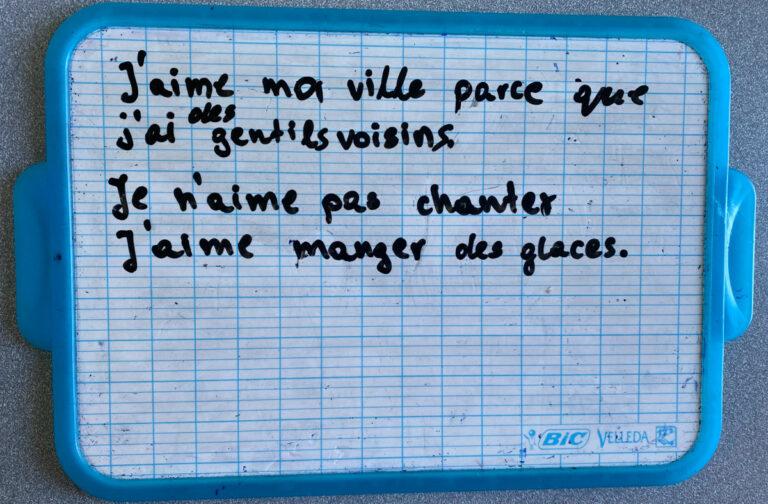 J'aime ma ville parce que
j'ai des gentils voisins.
Je n'aime pas chanter
J'aime manger des glaces.
BIC VELLEDA